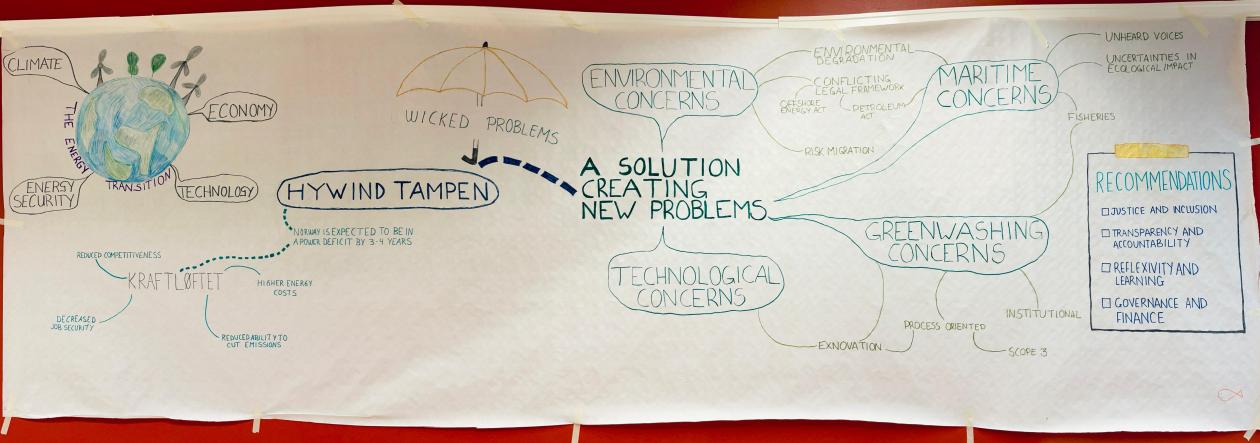 CLIMATE
ECONOMY
THE ENERGY
TRANSITION
ENERGY
SECURITY
TECHNOLOGY
WICKED PROBLEMS
HYWIND TAMPEN
NORWAY IS EXPECTED TO BE IN
A POWER DEFICIT BY 3-4 YEARS
KRAFTLØFTET
REDUCED COMPETITIVENESS
HIGHER ENERGY
COSTS
DECREASED
JOB SECURITY
REDUCED ABILITY TO
CUT EMISSIONS
A SOLUTION
CREATING
NEW PROBLEMS
ENVIRONMENTAL
CONCERNS
ENVIRONMENTAL
DEGRADATION
CONFLICTING
LEGAL FRAMEWORK
OFFSHORE
ENERGY ACT
PETROLEUM
ACT
RISK MIGRATION
MARITIME
CONCERNS
UNHEARD VOICES
UNCERTAINTIES IN
ECOLOGICAL IMPACT
FISHERIES
GREENWASHING
CONCERNS
TECHNOLOGICAL
CONCERNS
EXNOVATION
PROCESS ORIENTED
SCOPE 3
INSTITUTIONAL
RECOMMENDATIONS
JUSTICE AND INCLUSION
TRANSPARENCY AND
ACCOUNTABILITY
REFLEXIVITY AND
LEARNING
GOVERNANCE AND
FINANCE